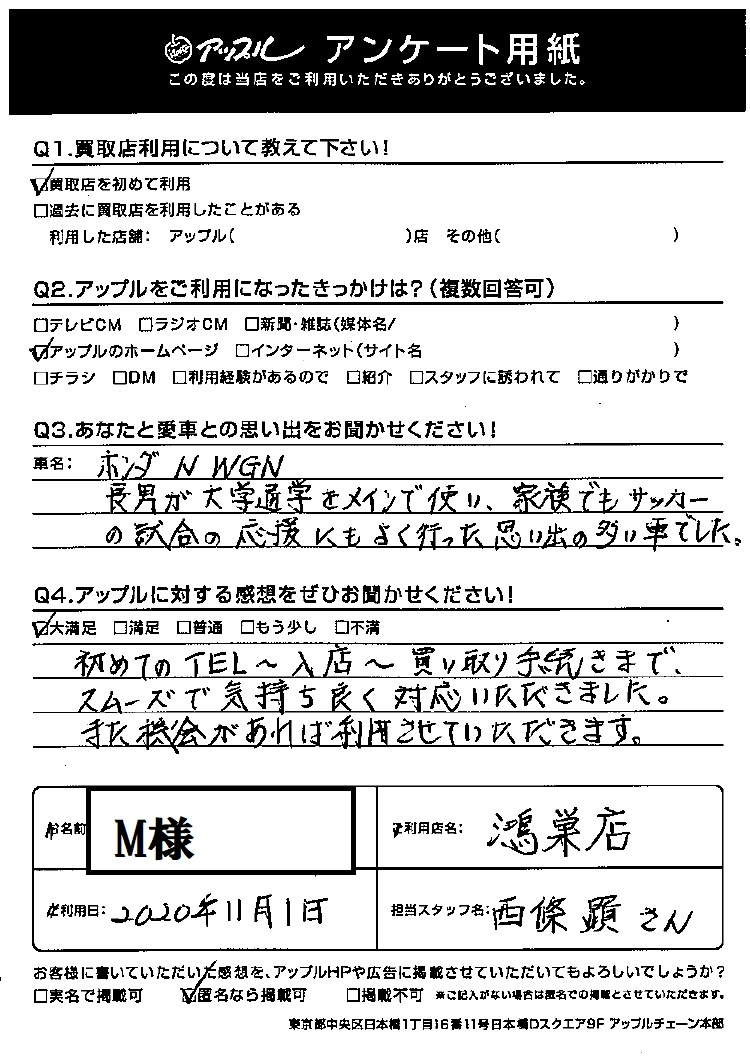 アップル アンケート用紙
この度は当店をご利用いただきありがとうございました。
Q1.買取店利用について教えて下さい!
☑買取店を初めて利用
□過去に買取店を利用したことがある
利用した店舗: アップル( )店 その他( )
Q2.アップルをご利用になったきっかけは?(複数回答可)
□テレビCM □ラジオCM □新聞・雑誌(媒体名/ )
☑アップルのホームページ □インターネット(サイト名 )
□チラシ □DM □利用経験があるので □紹介 □スタッフに誘われて □通りがかりで
Q3.あなたと愛車との思い出をお聞かせください!
車名: ホンダ N WGN
長男が大学通学をメインで使い、家族でもサッカー
の試合の応援にもよく行った思い出の多い車でした。
Q4.アップルに対する感想をぜひお聞かせください!
☑大満足 □満足 □普通 □もう少し □不満
初めてのTEL～入店～買い取り手続きまで、
スムーズで気持ち良く対応いただきました。
また機会があれば利用させていただきます。
お名前 M様
ご利用店名: 鴻巣店
ご利用日: 2020年11月1日
担当スタッフ名: 西條 顕 さん
お客様に書いていただいた感想を、アップルHPや広告に掲載させていただいてもよろしいでしょうか?
□実名で掲載可 ☑匿名なら掲載可 □掲載不可 ※ご記入がない場合は匿名での掲載とさせていただきます。
東京都中央区日本橋1丁目16番11号日本橋Dスクエア9F アップルチェーン本部